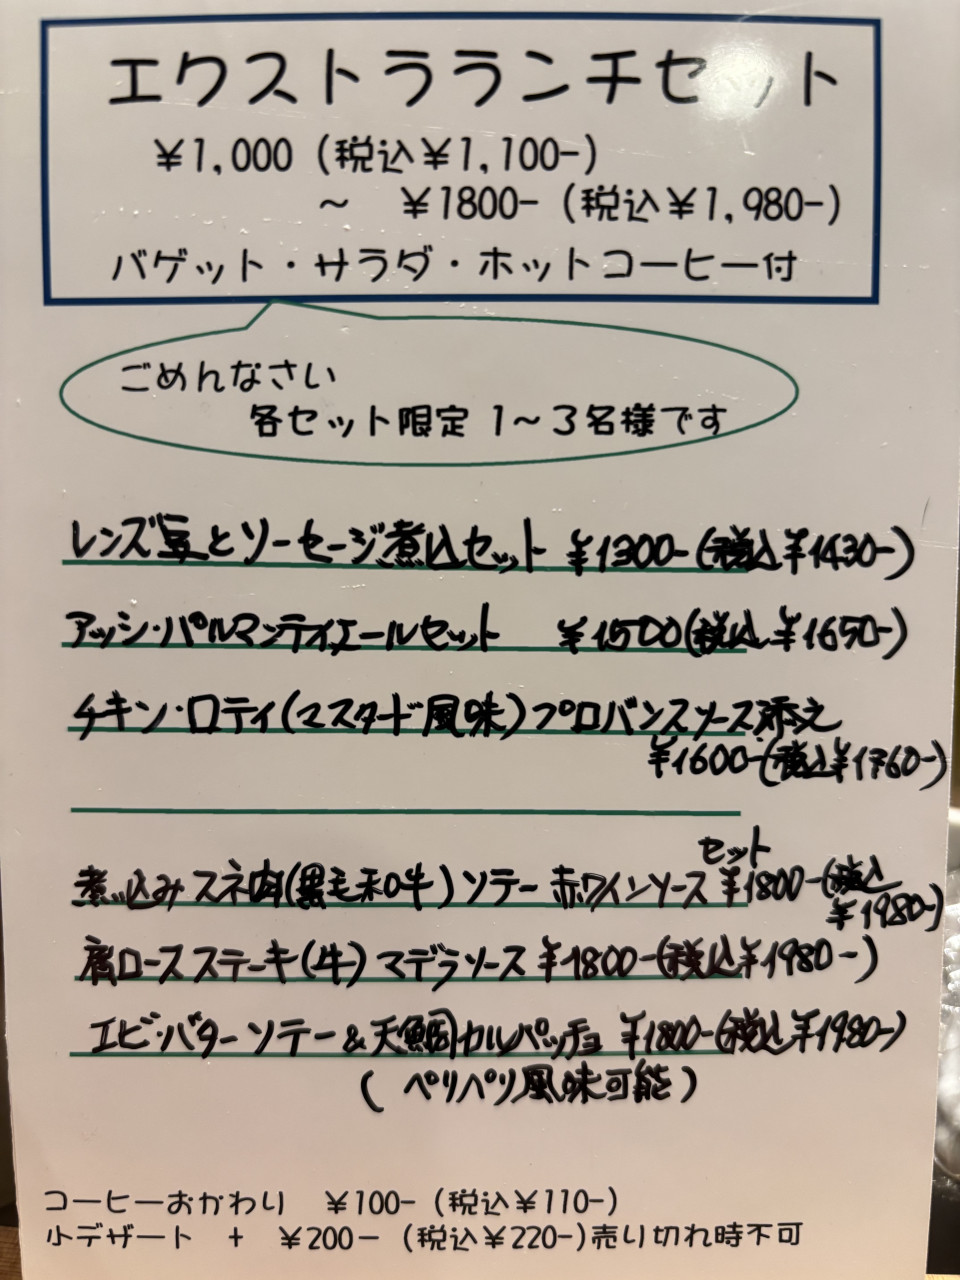 エクストラランチセット
￥1,000（税込￥1,100-）
～　￥1800-（税込￥1,980-）
バゲット・サラダ・ホットコーヒー付
ごめんなさい
各セット限定 1～3名様です
レンズ豆とソーセージ煮込セット ￥1300-(税込￥1430-)
アッシ・パルマンティエールセット ￥1500(税込￥1650-)
チキン・ロティ(マスタード風味)プロバンスソース添え
￥1600-(税込￥1760-)
セット
煮込みスネ肉(黒毛和牛)ソテー 赤ワインソース ￥1800-(税込
￥1980-)
肩ロースステーキ(牛)マデラソース ￥1800-(税込￥1980-)
エビ・バターソテー&天鯛カルパッチョ ￥1800-(税込￥1980-)
(ペリペリ風味可能)
コーヒーおかわり　￥100-（税込￥110-）
小デザート　+　￥200-（税込￥220-)売り切れ時不可